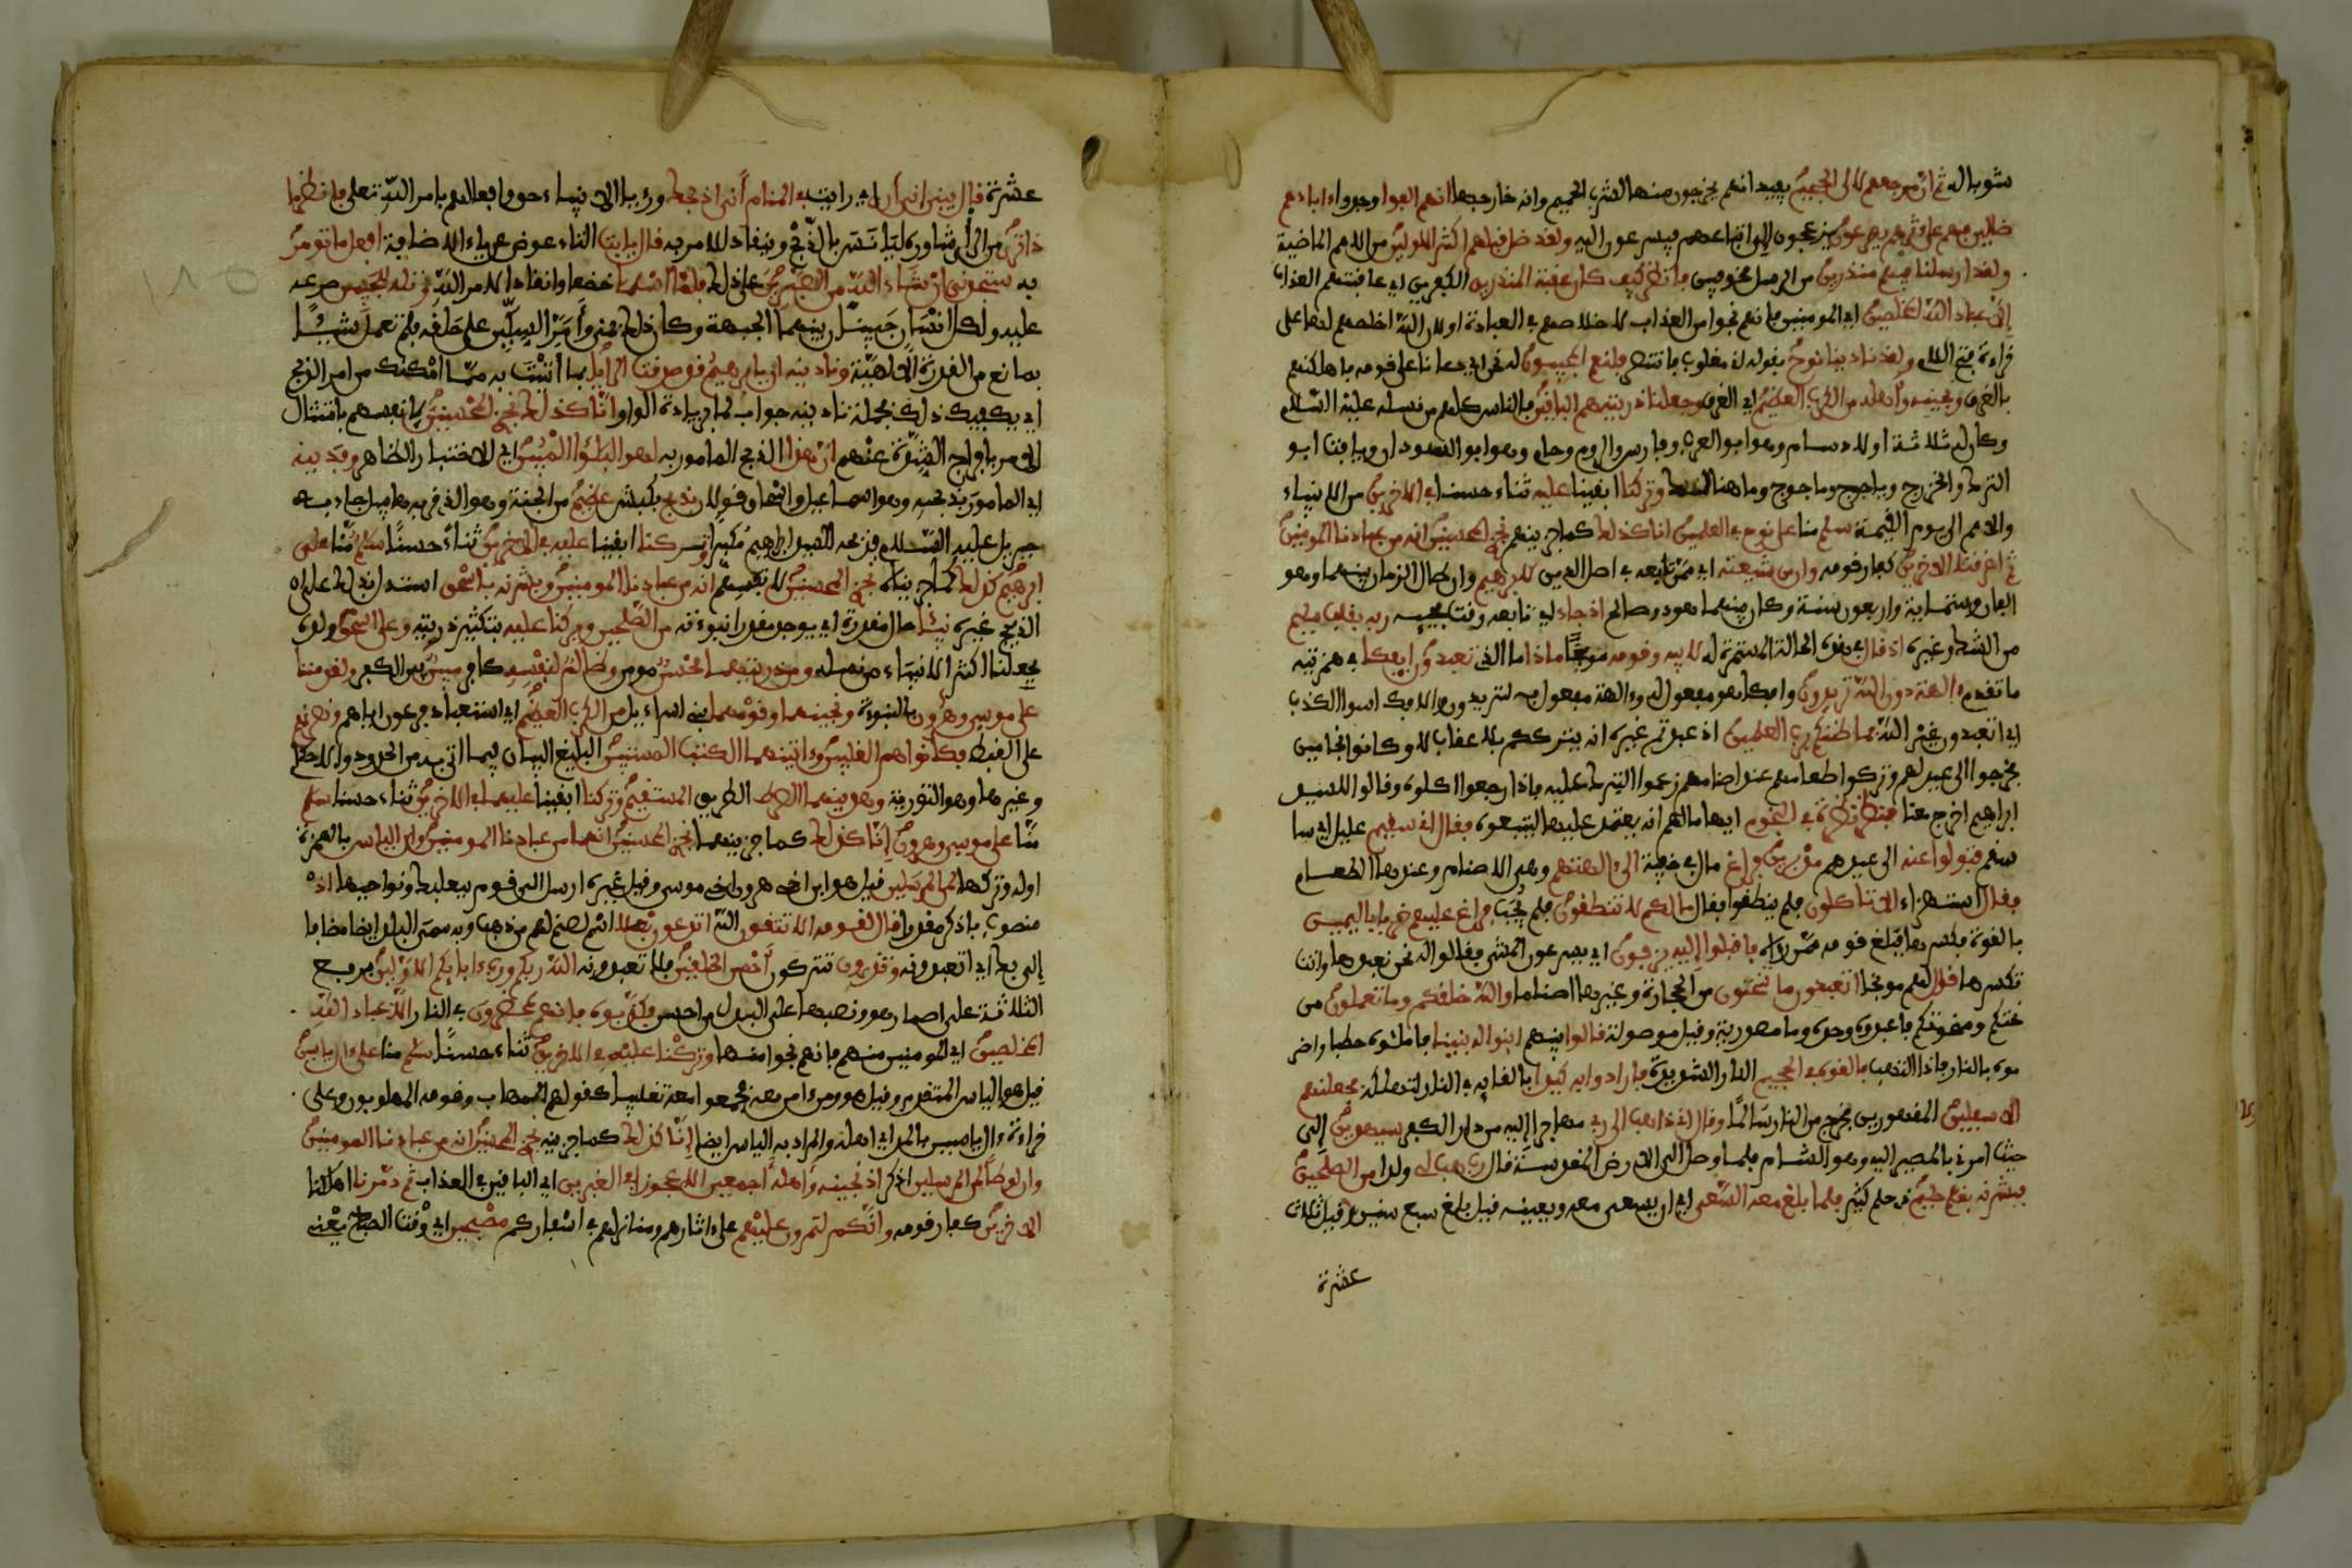 شوبا له ثم ان مرجعهم لالى الجحيم يفيد انهم يخرجون منها لشرب الحميم وانه خارجها انهم الفوا وجدوا ءاباءهم
ضالين فهم على ءاثرهم يهرعون يزعجون الى اتباعهم فيسرعون اليه ولقد ضل قبلهم اكثر الاولين من الامم الماضية
ولقد ارسلنا فيهم منذرين من الرسل مخوفين فانظر كيف كان عقبة المنذرين الكفرين اي عاقبتهم العذاب
إلا عباد الله المخلصين اي المومنين فانهم نجوا من العذاب لاخلاصهم في العبادة او لان الله اخلصهم لها على
قراءة فتح اللام ولقد نادينا نوح بقوله اني مغلوب فانتصر فلنعم المجيبون له نحن اي دعانا على قومه فاهلكنهم
بالغرق ونجينه وأهله من الكرب العظيم اي الغرق وجعلنا ذريته هم الباقين فالناس كلهم من نسله عليه السلام
وكان له ثلاثة اولاد سام وهو ابو العرب وفارس والروم وحام وهو ابو السودان ويافث ابو
الترك والخزرج وياجوج وماجوج وما هنالك وتركنا ابقينا عليه ثناء حسنا في الاخرين من الانبياء
والامم الى يوم القيمة سلم منا على نوح في العلمين انا كذلك كما جزينهم نجزي المحسنين انه من عبادنا المومنين
ثم اغرقنا الاخرين كفار قومه وان من شيعته اي ممن تابعه في اصل الدين لابرهيم وان طال الزمان بينهما وهو
الفان وستماية واربعون سنة وكان بينهما هود وصالح اذ جاء اي تابعه وقت مجيئه ربه بقلب سليم
من الشك وغيره اذ قال في هذه الحالة المستمرة له لابيه وقومه موبخا ماذا ما الذي تعبدون أيفكا في همزتيه
ما تقدم ءالهة دون الله تريدون وافكا مفعول له وءالهة مفعول به لتريدون والافك اسوا الكذب
اي اتعبدون غير الله فما ظنكم برب العلمين اذ عبدتم غيره انه يترككم بلا عقاب لا وكانوا نجامين
فخرجوا الى عيد لهم وتركوا طعامهم عند اصنامهم زعموا التبرك عليه فاذا رجعوا اكلوه وقالوا للسيد
ابراهيم اخرج معنا فنظر نظرة في النجوم ايهاما لهم انه يعتمد عليها ليتبعوه فقال اني سقيم عليل اي سا
سقم فتولوا عنه الى عيدهم مدبرين فراغ مال في خفية الى ءالهتهم وهي الاصنام وعندها الطعام
فقال استهزاء الا تاكلون فلم ينطقوا فقال ما لكم لا تنطقون فلم يجب فراغ عليهم ضربا باليمين
بالقوة فكسرها فبلغ قومه ممن رءاه فاقبلوا إليه يزفون اي يسرعون المشي فقالوا له نحن نعبدها وانت
تكسرها قال لهم موبخا اتعبدون ما تنحتون من الحجارة وغيرها اصناما والله خلقكم وما تعملون من
نحتكم ومنحوتكم فاعبدوه وحده وما مصدرية وقيل موصولة قالوا بينهم ابنوا له بنينا فاملئوه حطبا واضر
موه بالنار فاذا التهب فالقوه في الجحيم النار الشديدة فارادوا به كيدا بالقايه في النار لتهلكه فجعلنهم
الاسفلين المقهورين فخرج من النار سالما وقال اني ذاهب الى ربي مهاجرا إليه من دار الكفر سيهدين إلى
حيث امرني بالمصير اليه وهو الشام فلما وصل الى الارض المقدسة قال رب هب لي ولدا من الصلحين
فبشرنه بغلم حليم ذي حلم كثير فلما بلغ معه السعى اي ان يسعى معه ويعينه قيل بلغ سبع سنين وقيل ثلاث
عشرة
عشرة قال يبني اني أرى اي رايت في المنام أني اذبحك ورءيا الانبياء حق وافعالهم بامر الله تعلى فانظر ما
ذا ترى من الرأي شاوره ليانس بالذبح وينقاد للامر به قال يابت التاء عوض عن ياء الاضافة افعل ما تومر
به ستجدني ان شاء الله من الصبرين على ذلك فلما أسلما خضعا وانقادا لامر الله وتله للجبين صرعه
عليه ولكل انسان جبينان بينهما الجبهة وكان ذلك بمنى وأمر السكين على حلقه فلم تعمل شيئا
بمانع من القدرة الالهية وندينه ان يابرهيم قد صدقت الرءيا بما أتيت به مما امكنك من امر الذبح
اي يكفيك ذلك فجملة نادينه جواب لما بزيادة الواو انا كذلك نجزي المحسنين لانفسهم بامتثال
الامر بافراج الشدة عنهم ان هذا الذبح المامور به لهو البلؤا المبين اي الاختبار الظاهر وفدينه
اي المامور بذبحه وهو اسماعيل او اسحاق قولان بذبح بكبش عظيم من الجنة وهو الذي قربه هابيل جاء به
جبريل عليه السلام فذبحه السيد ابراهيم مكبرا وتركنا ابقينا عليه في الاخرين ثناء حسنا سلم منا على
ابرهيم كذلك كما جزيناه نجزي المحسنين لانفسهم انه من عبادنا المومنين وبشرنه باسحق استدل بذلك على ان
الذبيح غيره نبيئا حال مقدرة اي يوجد مقدرا نبوءته من الصلحين وبركنا عليه بتكثير ذريته وعلى اسحق ولده
بجعلنا اكثر الانبياء من نسله ومن ذريتهما محسن مومن وظالم لنفسه كافر مبين بين الكفر ولقد مننا
على موسى وهرون بالنبوءة ونجينهما وقومهما بني اسراءيل من الكرب العظيم اي استعباد فرعون اياهم ونصرنهم
على القبط فكانوا هم الغلبين وءاتينهما الكتب المستبين البليغ البيان فيما اتى به من الحدود والاحكام
وغيرها وهو التورية وهدينهما الصرط الطريق المستقيم وتركنا ابقينا عليهما في الاخرين ثناء حسنا سلم
منا على موسى وهرون إنا كذلك كما جزينهما نجزي المحسنين انهما من عبادنا المومنين وان الياس بالهمزة
اوله وتركها لمن المرسلين قيل هو ابن اخي هرون اخي موسى وقيل غيره ارسل الى قوم ببعلبك ونواحيها اذ
منصوب باذكر مقدرا قال لقومه الا تتقون الله اتدعون بعلا اسم لصنم لهم من ذهب وبه سمي البلد ايضا مضافا
إلى بك اي اتعبدونه وتذرون تتركون أحسن الخلقين فلا تعبدونه الله ربكم ورب ءابايكم الاولين برفع
الثلاثة على اضمار هو ونصبها على البدل من احسن فكذبوه فانهم لمحضرون في النار إلا عباد الله
المخلصين اي المومنين منهم فانهم نجوا منها وتركنا عليه في الاخرين ثناء حسنا سلم منا على ءال ياسين
قيل هو الياس المتقدم وقيل هو ومن ءامن معه فجمعوا معه تغليبا كقولهم للمهلب وقومه المهلبون وعلى
قراءة ءال ياسين بالمد اي اهله والمراد به الياس ايضا إنا كذلك كما جزينه نجزي المحسنين انه من عبادنا المومنين
وان لوطا لمن المرسلين اذكر اذ نجينه وأهله أجمعين الا عجوزا في الغبرين اي الباقين في العذاب ثم دمرنا اهلكنا
الاخرين كفار قومه وانكم لتمرون عليهم على ءاثارهم ومنازلهم في أسفاركم مصبحين اي وقت الصباح يعني